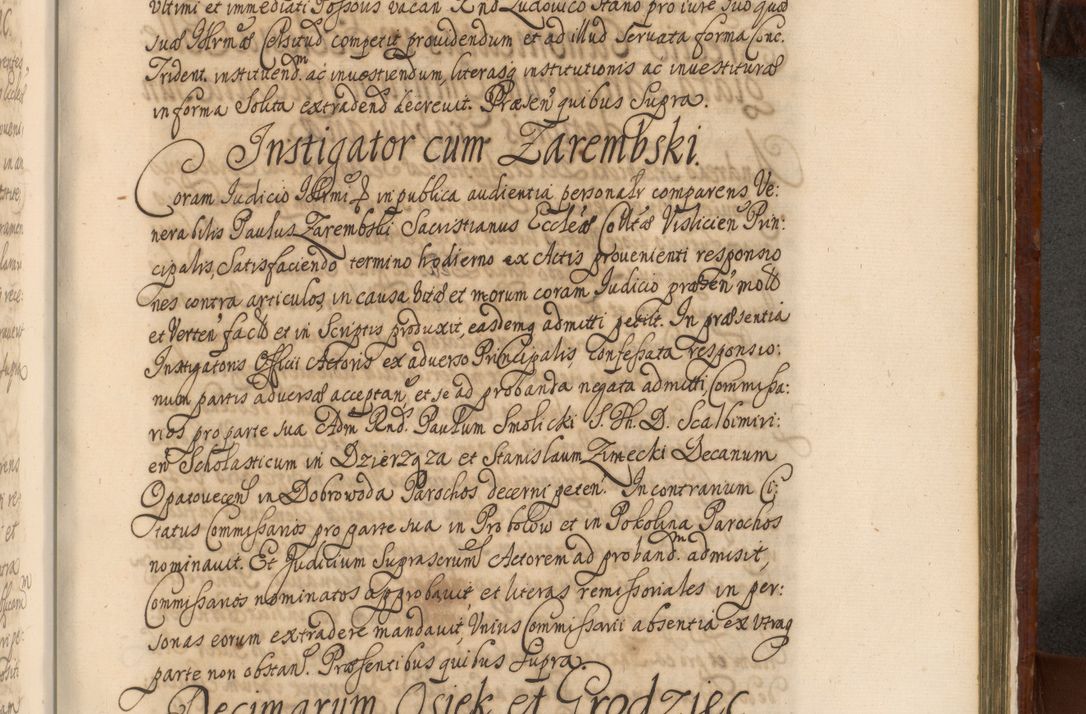 Ultimi et immediati Possoris vacan Rnd Ludovico Stano pro iure suo quod
suæ Idłrmæ Celsitud competit providendum et ad illud servata forma Conc.
Trident. instituend.m ac investiendum, literasq institutionis ac investituræ
in forma Solita extradend decrevit. Præsen quibus Supra.
Instigator cum Zarembski.
Coram Judicio Idłrmi et in publica audientia personalr comparens Ve:
nerabilis Paulus Zarembski Sacristianus Eccleæ Collræ Visliciens Prin:
cipalis, Satisfaciendo termino hodierno ex Actis provenienti responsio
nes contra articulos, in causa vitæ et morum coram Judicio præsen mott
et Verten facto et in Scriptis produxit, easdemq admitti petiit. In præsentia
Instigatoris Officii Actoris ex adverso Principalis, Confessata responsio:
num partis adversæ acceptan et se ad probanda negata admitti, Commissa:
rios pro parte sua Adm Rnd. Paulum Smolicki S. Th. D. Scalbimiri:
en Scholasticum in Dzierzqza et Stanislaum Zimecki Decanum
Opatovecen in Dobrowoda Parochos decerni peten. In contrarium Ci:
tatus Commissarios pro parte sua in Probolow et in Pokolina Parochos
nominavit. Et Judicium Suprascrum Actorem ad proband.m admisit,
Commissarios nominatos approbavit, et literas remissoriales in per:
sonas eorum extradere mandavit, Unius Commissarii absentia ex utraq
parte non obstan. Præsentibus quibus Supra.
Decimarum Osiek et Grodziec